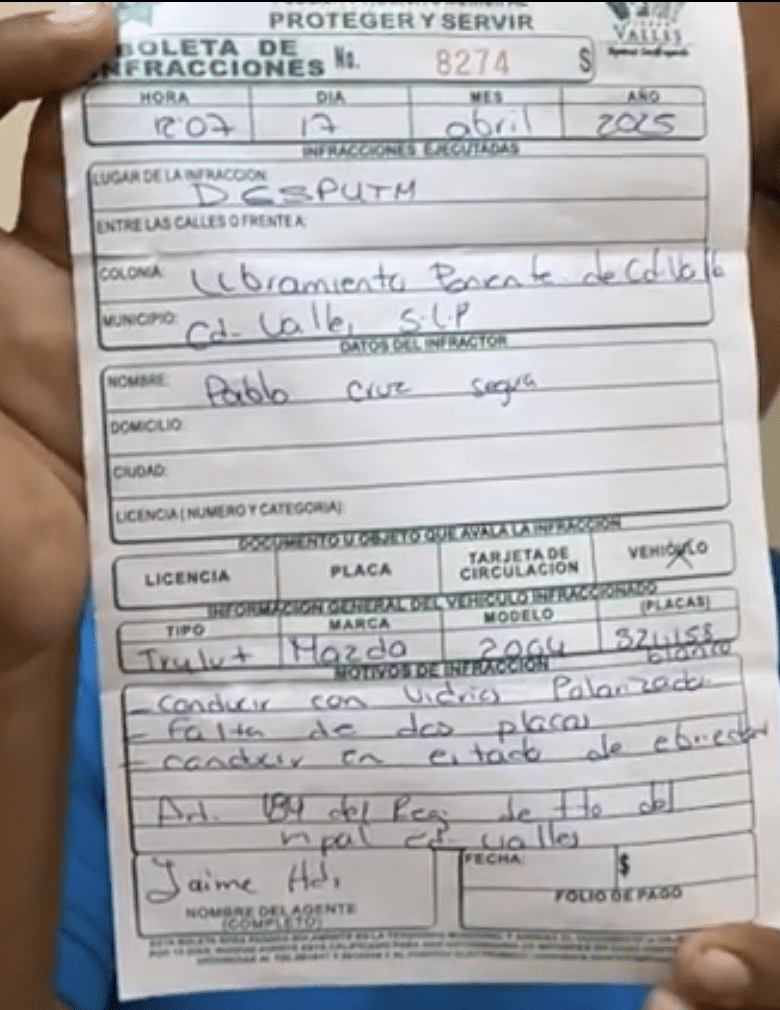 PROTEGER Y SERVIR
VALLES
BOLETA DE
INFRACCIONES No. 8274 $
HORA DIA MES AÑO
12:07 17 abril 2025
INFRACCIONES EJECUTADAS
LUGAR DE LA INFRACCION:
DGSPYTM
ENTRE LAS CALLES O FRENTE A:
COLONIA: Libramiento Poniente de Cd. Valles
MUNICIPIO: Cd. Valles, S.L.P
DATOS DEL INFRACTOR
NOMBRE: Pablo Cruz Segura
DOMICILIO:
CIUDAD:
LICENCIA (NUMERO Y CATEGORIA):
DOCUMENTO U OBJETO QUE AVALA LA INFRACCION
LICENCIA PLACA TARJETA DE CIRCULACION VEHICULO
INFORMACION GENERAL DEL VEHICULO INFRACCIONADO
TIPO MARCA MODELO (PLACAS)
Mazda 2004
blanco
MOTIVOS DE INFRACCIÓN
- conducir con vidrios Polarizado
- Falta de dos placas
- conducir en estado de ebriedad
Art. 184 del Reg. de tto del
mpal cd valles
Jaime Hdz
NOMBRE DEL AGENTE
(COMPLETO)
FECHA: $
FOLIO DE PAGO